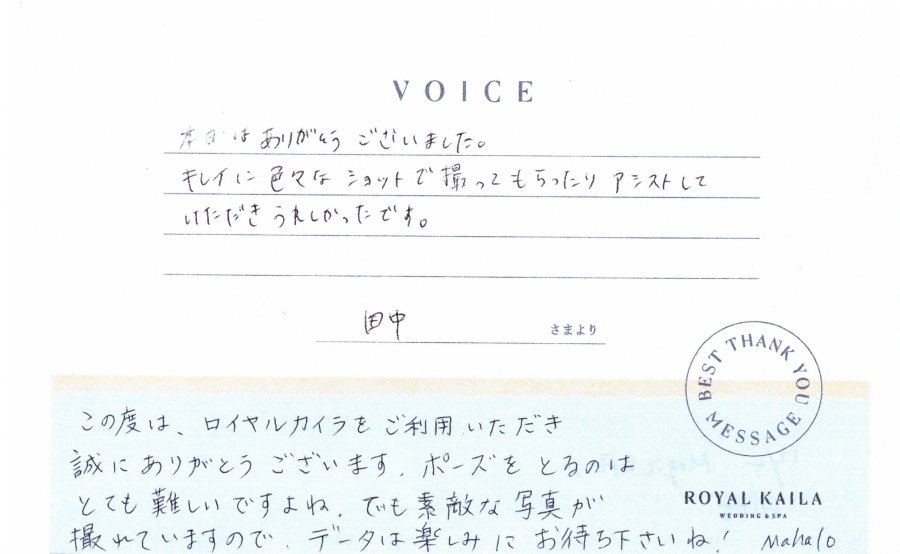 VOICE
本日はありがとうございました。
キレイに色々なショットで撮ってもらったりアシストして
いただきうれしかったです。
田中 さまより
BEST THANK YOU MESSAGE
この度は、ロイヤルカイラをご利用いただき
誠にありがとうございます。ポーズをとるのは
とても難しいですよね。でも素敵な写真が
撮れていますので、データは楽しみにお待ち下さいね! Mahalo
ROYAL KAILA
WEDDING & SPA